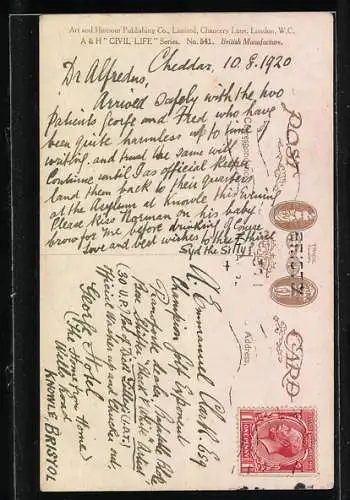 Art and Humour Publishing Co., Limited, Chancery Lane, London, W.C.
A & H "CIVIL LIFE" Series. No. 541. British Manufacture.
Cheddar, 10.8.1920
Dr Alfredus,
Arrived safely with the two
Patients George and Fred who have
been quite harmless up to time of
writing and trust the same will
continue until I as official keeper
land them back to their quarters
at the Asylum at Knowle this evening
Please Kiss Norman on his baby
brow for me before drinking of course
Love and best wishes to the
Syd the Silly
POST
CARD
Correspondence
Address
N. Emmanuel Clark. Esq
Champion Golf Exponent
Official
George Hotel
(The Home from Home)
Wells Road
KNOWLE BRISTOL
ONE PENNY